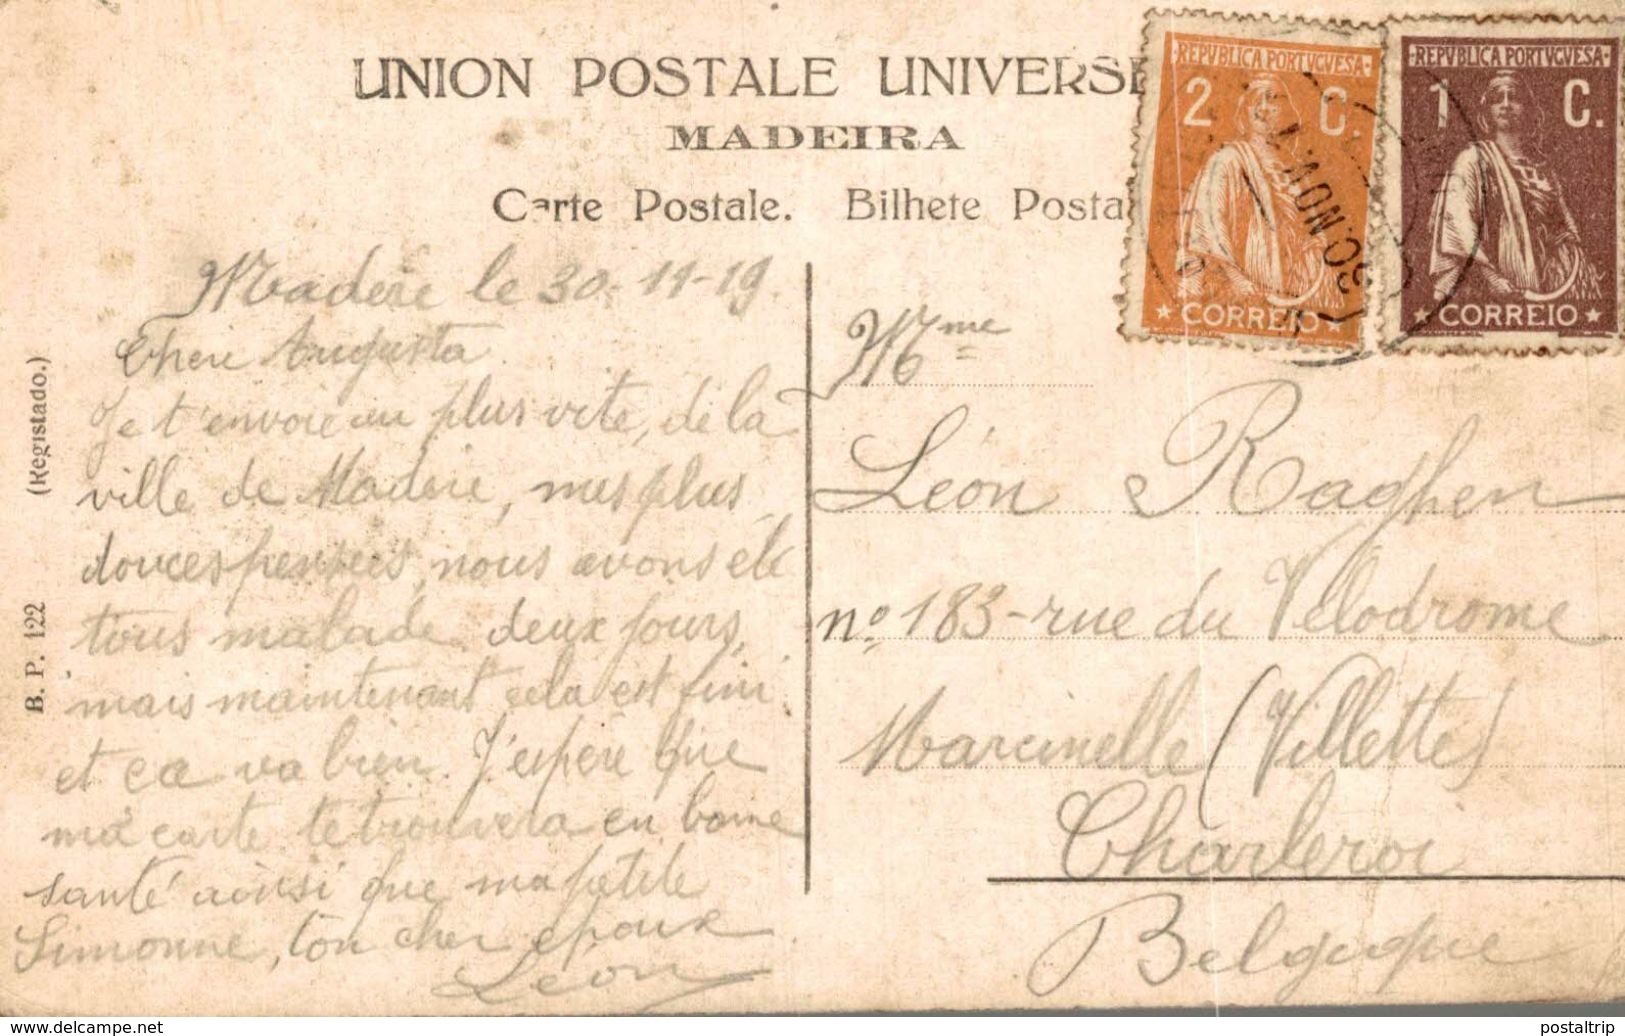 UNION POSTALE UNIVERSE
MADEIRA
Carte Postale. Bilhete Posta
REPVBLICA PORTVGVESA
2 C.
CORREIO
REPVBLICA PORTVGVESA
1 C.
CORREIO
30.NOV.19
(Registado.)
B. P. 122
Madère le 30-11-19.
Chere Augusta
Je t'envoie au plus vite, de la
ville de Madère, mes plus
douces pensées, nous avons été
tous malade deux jours,
mais maintenant cela est fini
et ca va bien. J'espère que
ma carte te trouvera en bonne
santé ainsi que ma petite
Simonne, ton cher epoux
Léon
Mme
Léon Raghen
no 183-rue du Vélodrome
Marcinelle (Villette)
Charleroi
Belgique
delcampe.net
postaltrip